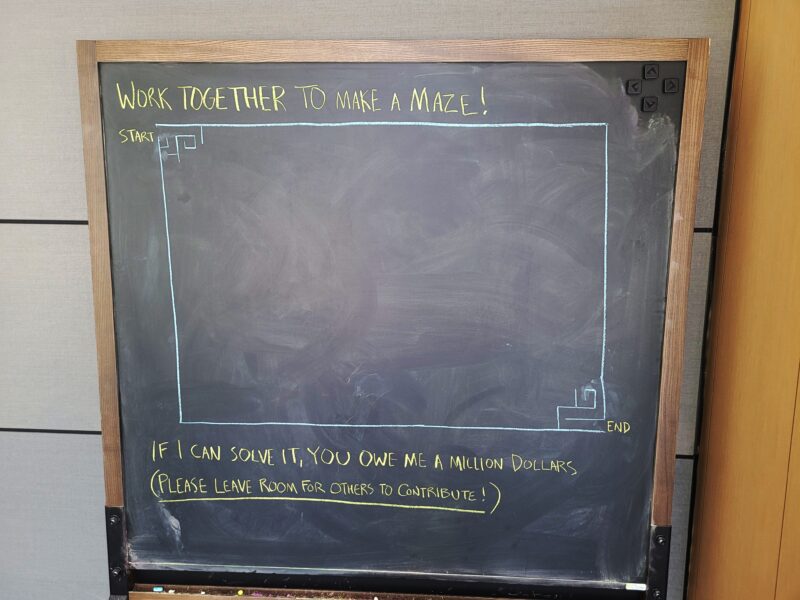 WORK TOGETHER TO MAKE A MAZE!
START
END
IF I CAN SOLVE IT, YOU OWE ME A MILLION DOLLARS
(PLEASE LEAVE ROOM FOR OTHERS TO CONTRIBUTE!)